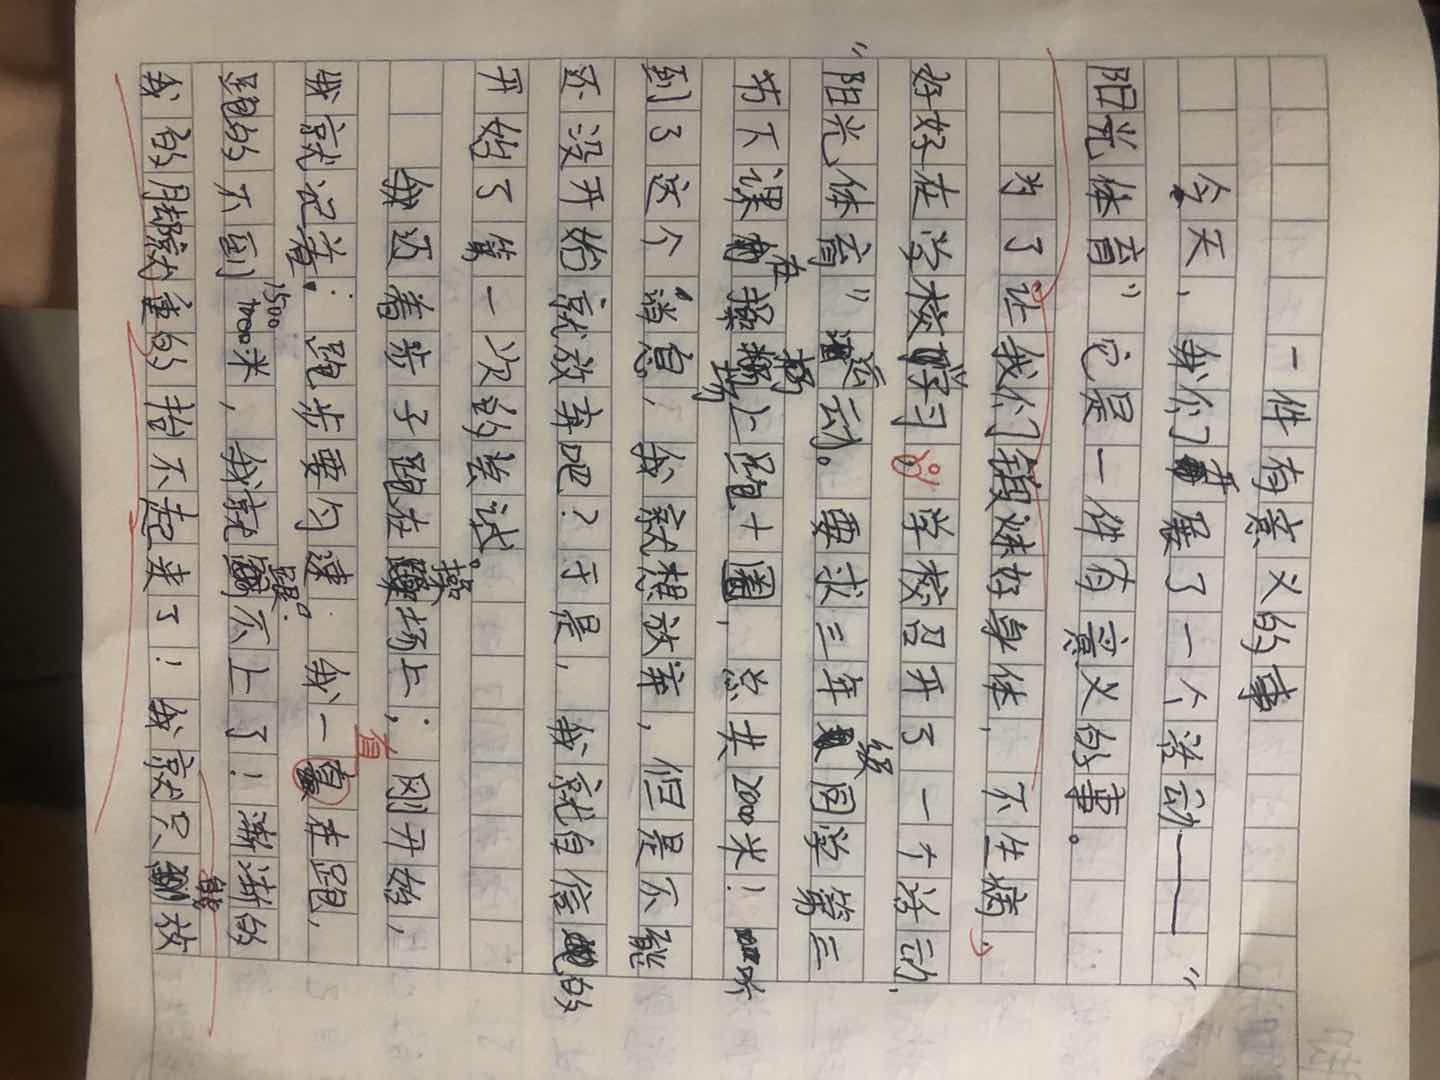 一件有意义的事
今天，我们开展了一个活动——“
阳光体育”它是一件有意义的事。
为了让我们锻炼好身体，不生病，
好好在学校学习，学校召开了一个活动，
“阳光体育”运动。要求三年级同学第三
节下课在操场上跑十圈，总共2000米！听
到了这个消息，我就想放弃，但是不能
还没开始就放弃吧？于是，我就自信的
开始了第一次的尝试。
我迈着步子跑在操场上，刚开始，
我就记着：跑步要匀速。我一直在跑，
跑的不到1500米，我就跟不上了！渐渐的
我的脚变的重的抬不起来了！我就只能放